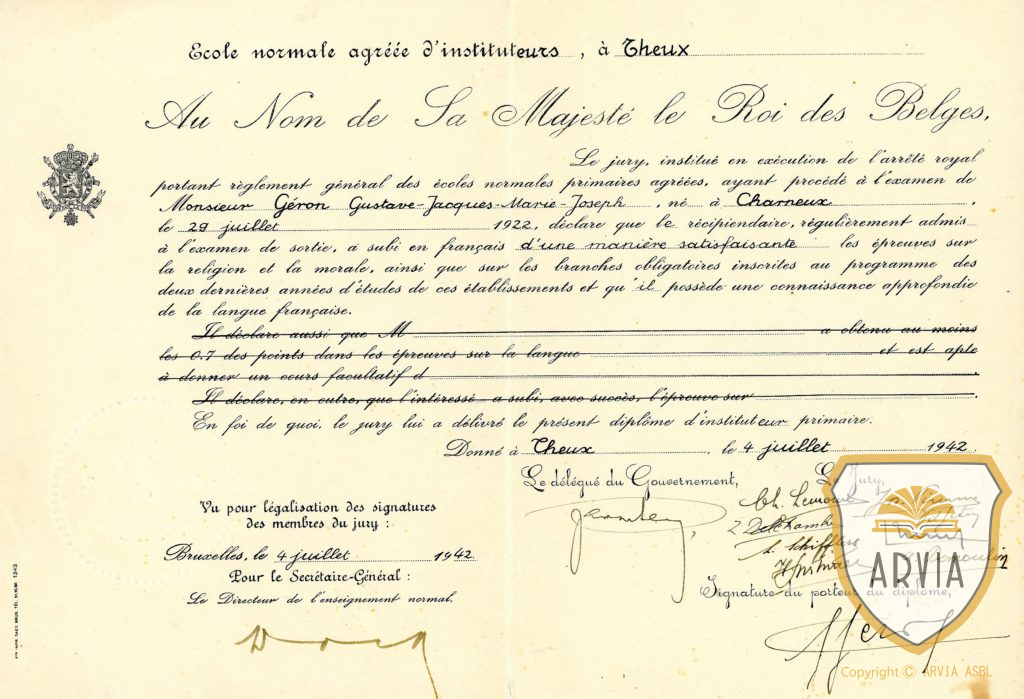 Ecole normale agréée d'instituteurs, à Theux
Au Nom de Sa Majesté le Roi des Belges,
Le jury, institué en exécution de l'arrêté royal
portant règlement général des écoles normales primaires agréées, ayant procédé à l'examen de
Monsieur Géron Gustave-Jacques-Marie-Joseph, né à Charneux,
le 29 juillet 1922, déclare que le récipiendaire, régulièrement admis
à l'examen de sortie, a subi en français d'une manière satisfaisante les épreuves sur
la religion et la morale, ainsi que sur les branches obligatoires inscrites au programme des
deux dernières années d'études de ces établissements et qu'il possède une connaissance approfondie
de la langue française.
Il déclare aussi que M a obtenu au moins
les 0.7 des points dans les épreuves sur la langue et est apte
à donner un cours facultatif d
Il déclare, en outre, que l'intéressé a subi, avec succès, l'épreuve sur
En foi de quoi, le jury lui a délivré le présent diplôme d'instituteur primaire.
Donné à Theux, le 4 juillet 1942.
Le délégué du Gouvernement,
Le Jury,
Vu pour légalisation des signatures
des membres du jury :
Bruxelles, le 4 juillet 1942
Pour le Secrétaire-Général :
Le Directeur de l'enseignement normal,
Signature du porteur du diplôme,
ARVIA
Copyright © ARVIA ASBL